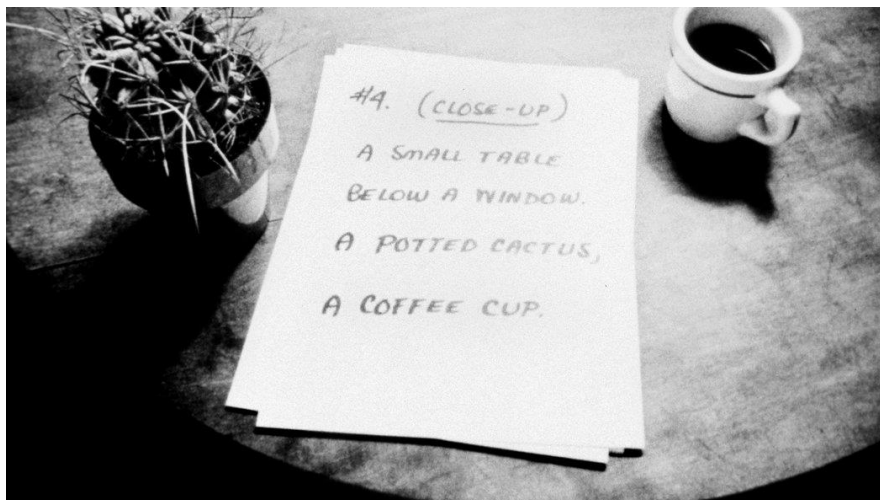 #4. (CLOSE-UP)
A SMALL TABLE
BELOW A WINDOW.
A POTTED CACTUS,
A COFFEE CUP.